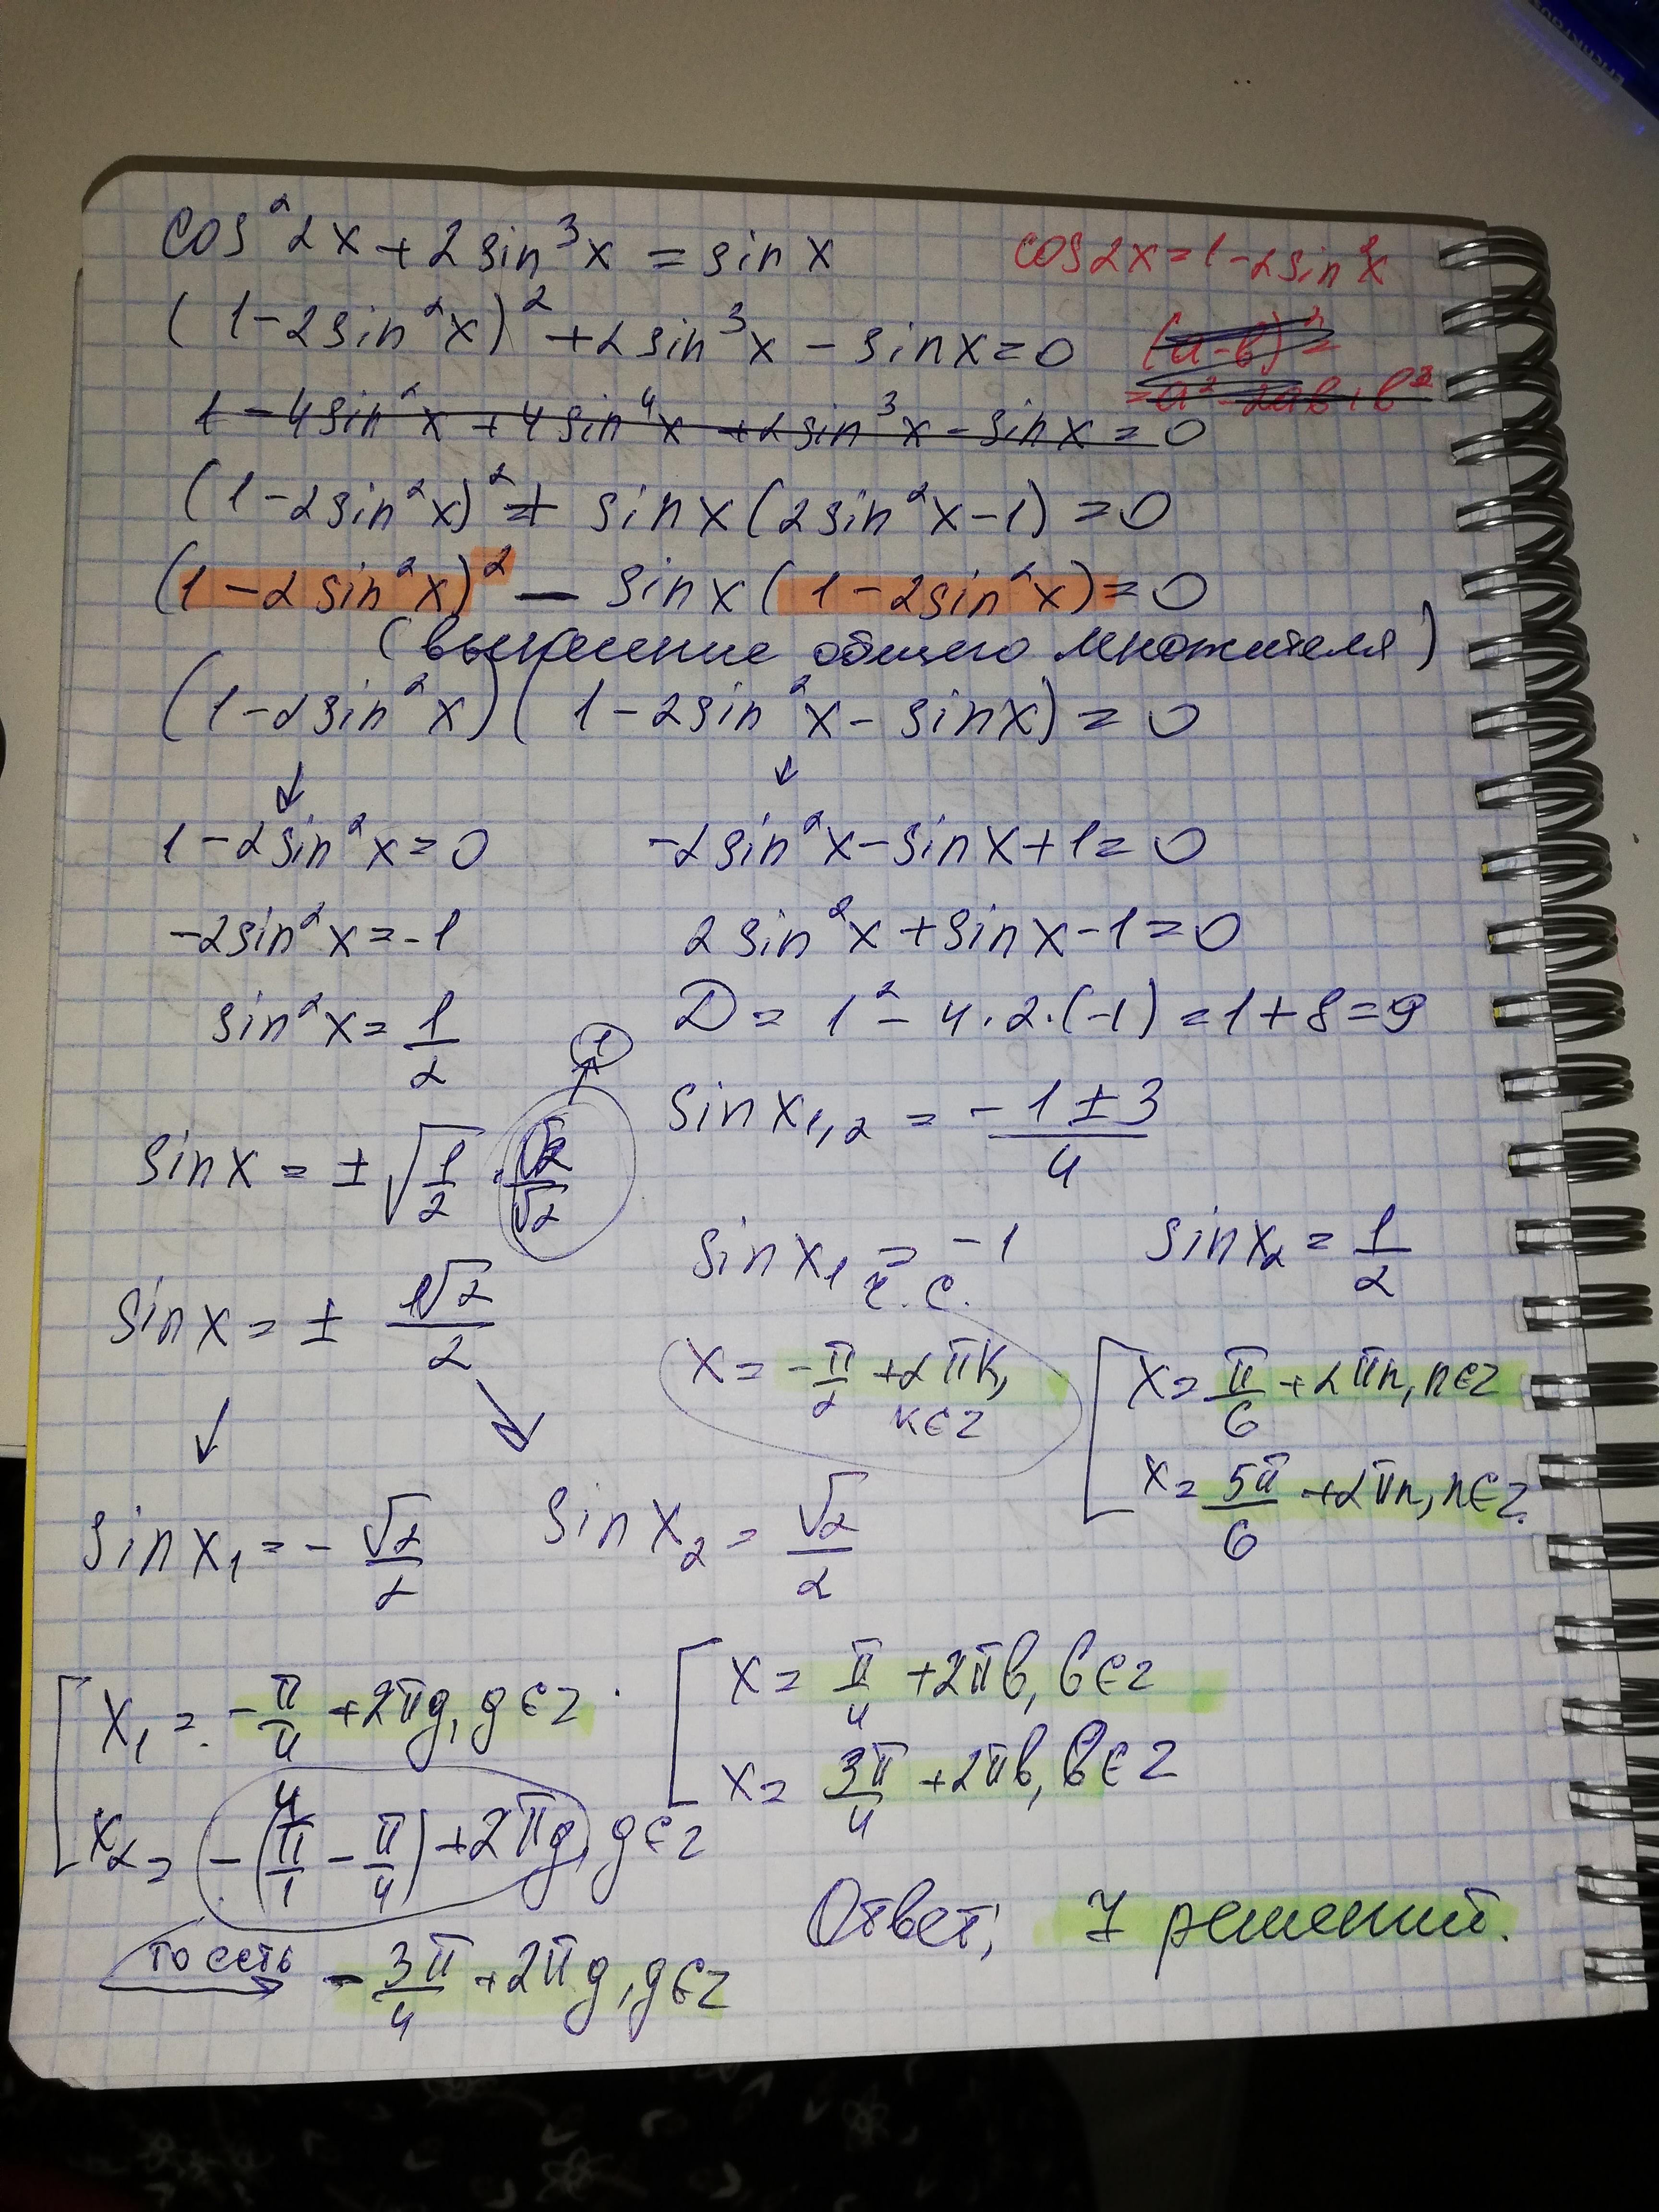 cos²2x + 2sin³x = sinx
cos2x = 1-2sin²x
(1-2sin²x)² + 2sin³x - sinx = 0
(a-b)² =
= a² - 2ab + b²
1 - 4sin²x + 4sin⁴x + 2sin³x - sinx = 0
(1-2sin²x)² + sinx(2sin²x-1) = 0
(1-2sin²x)² - sinx(1-2sin²x) = 0
(вынесение общего множителя)
(1-2sin²x)(1-2sin²x - sinx) = 0
↓ ↓
1-2sin²x = 0
-2sin²x = -1
sin²x = 1/2
sinx = ±√(1/2) · √2/√2 → 1
sinx = ± 1√2/2
↓ ↘
-2sin²x - sinx + 1 = 0
2sin²x + sinx - 1 = 0
D = 1² - 4·2·(-1) = 1+8 = 9
sinx₁,₂ = (-1±3)/4
sinx₁ = -1
ч.с.
x = -π/2 + 2πk,
k∈z
sinx₂ = 1/2
x = π/6 + 2πn, n∈z
x = 5π/6 + 2πn, n∈z.
sinx₁ = - √2/2
sinx₂ = √2/2
x₁ = -π/4 + 2πg, g∈z
x₂ = -(4 π/1 - π/4) + 2πg, g∈z
то есть → - 3π/4 + 2πg, g∈z
x = π/4 + 2πb, b∈z
x = 3π/4 + 2πb, b∈z
Ответ; 7 решений.